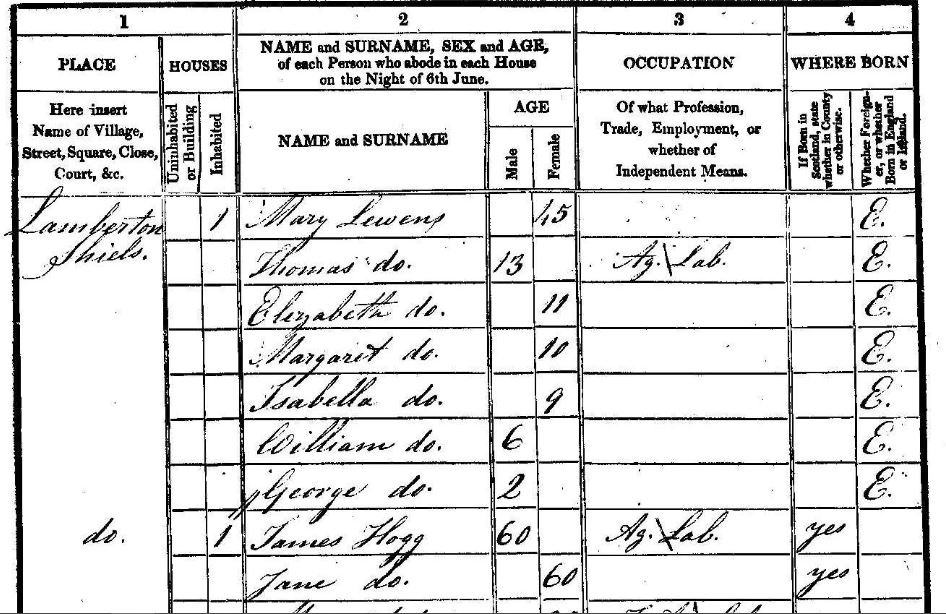 1 2 3 4
PLACE HOUSES NAME and SURNAME, SEX and AGE, of each Person who abode in each House on the Night of 6th June. OCCUPATION WHERE BORN
Here insert Name of Village, Street, Square, Close, Court, &c. Uninhabited or Building Inhabited NAME and SURNAME AGE Male Female Of what Profession, Trade, Employment, or whether of Independent Means. If Born in Scotland, state whether in County or otherwise. Whether Foreigner, or whether Born in England or Ireland.
Lamberton 1 Mary Lewens 45 E.
Shiels. Thomas do. 13 Ag. Lab. E.
Elizabeth do. 11 E.
Margaret do. 10 E.
Isabella do. 9 E.
William do. 6 E.
George do. 2 E.
do. 1 James Hogg 60 Ag. Lab. yes
Jane do. 60 yes